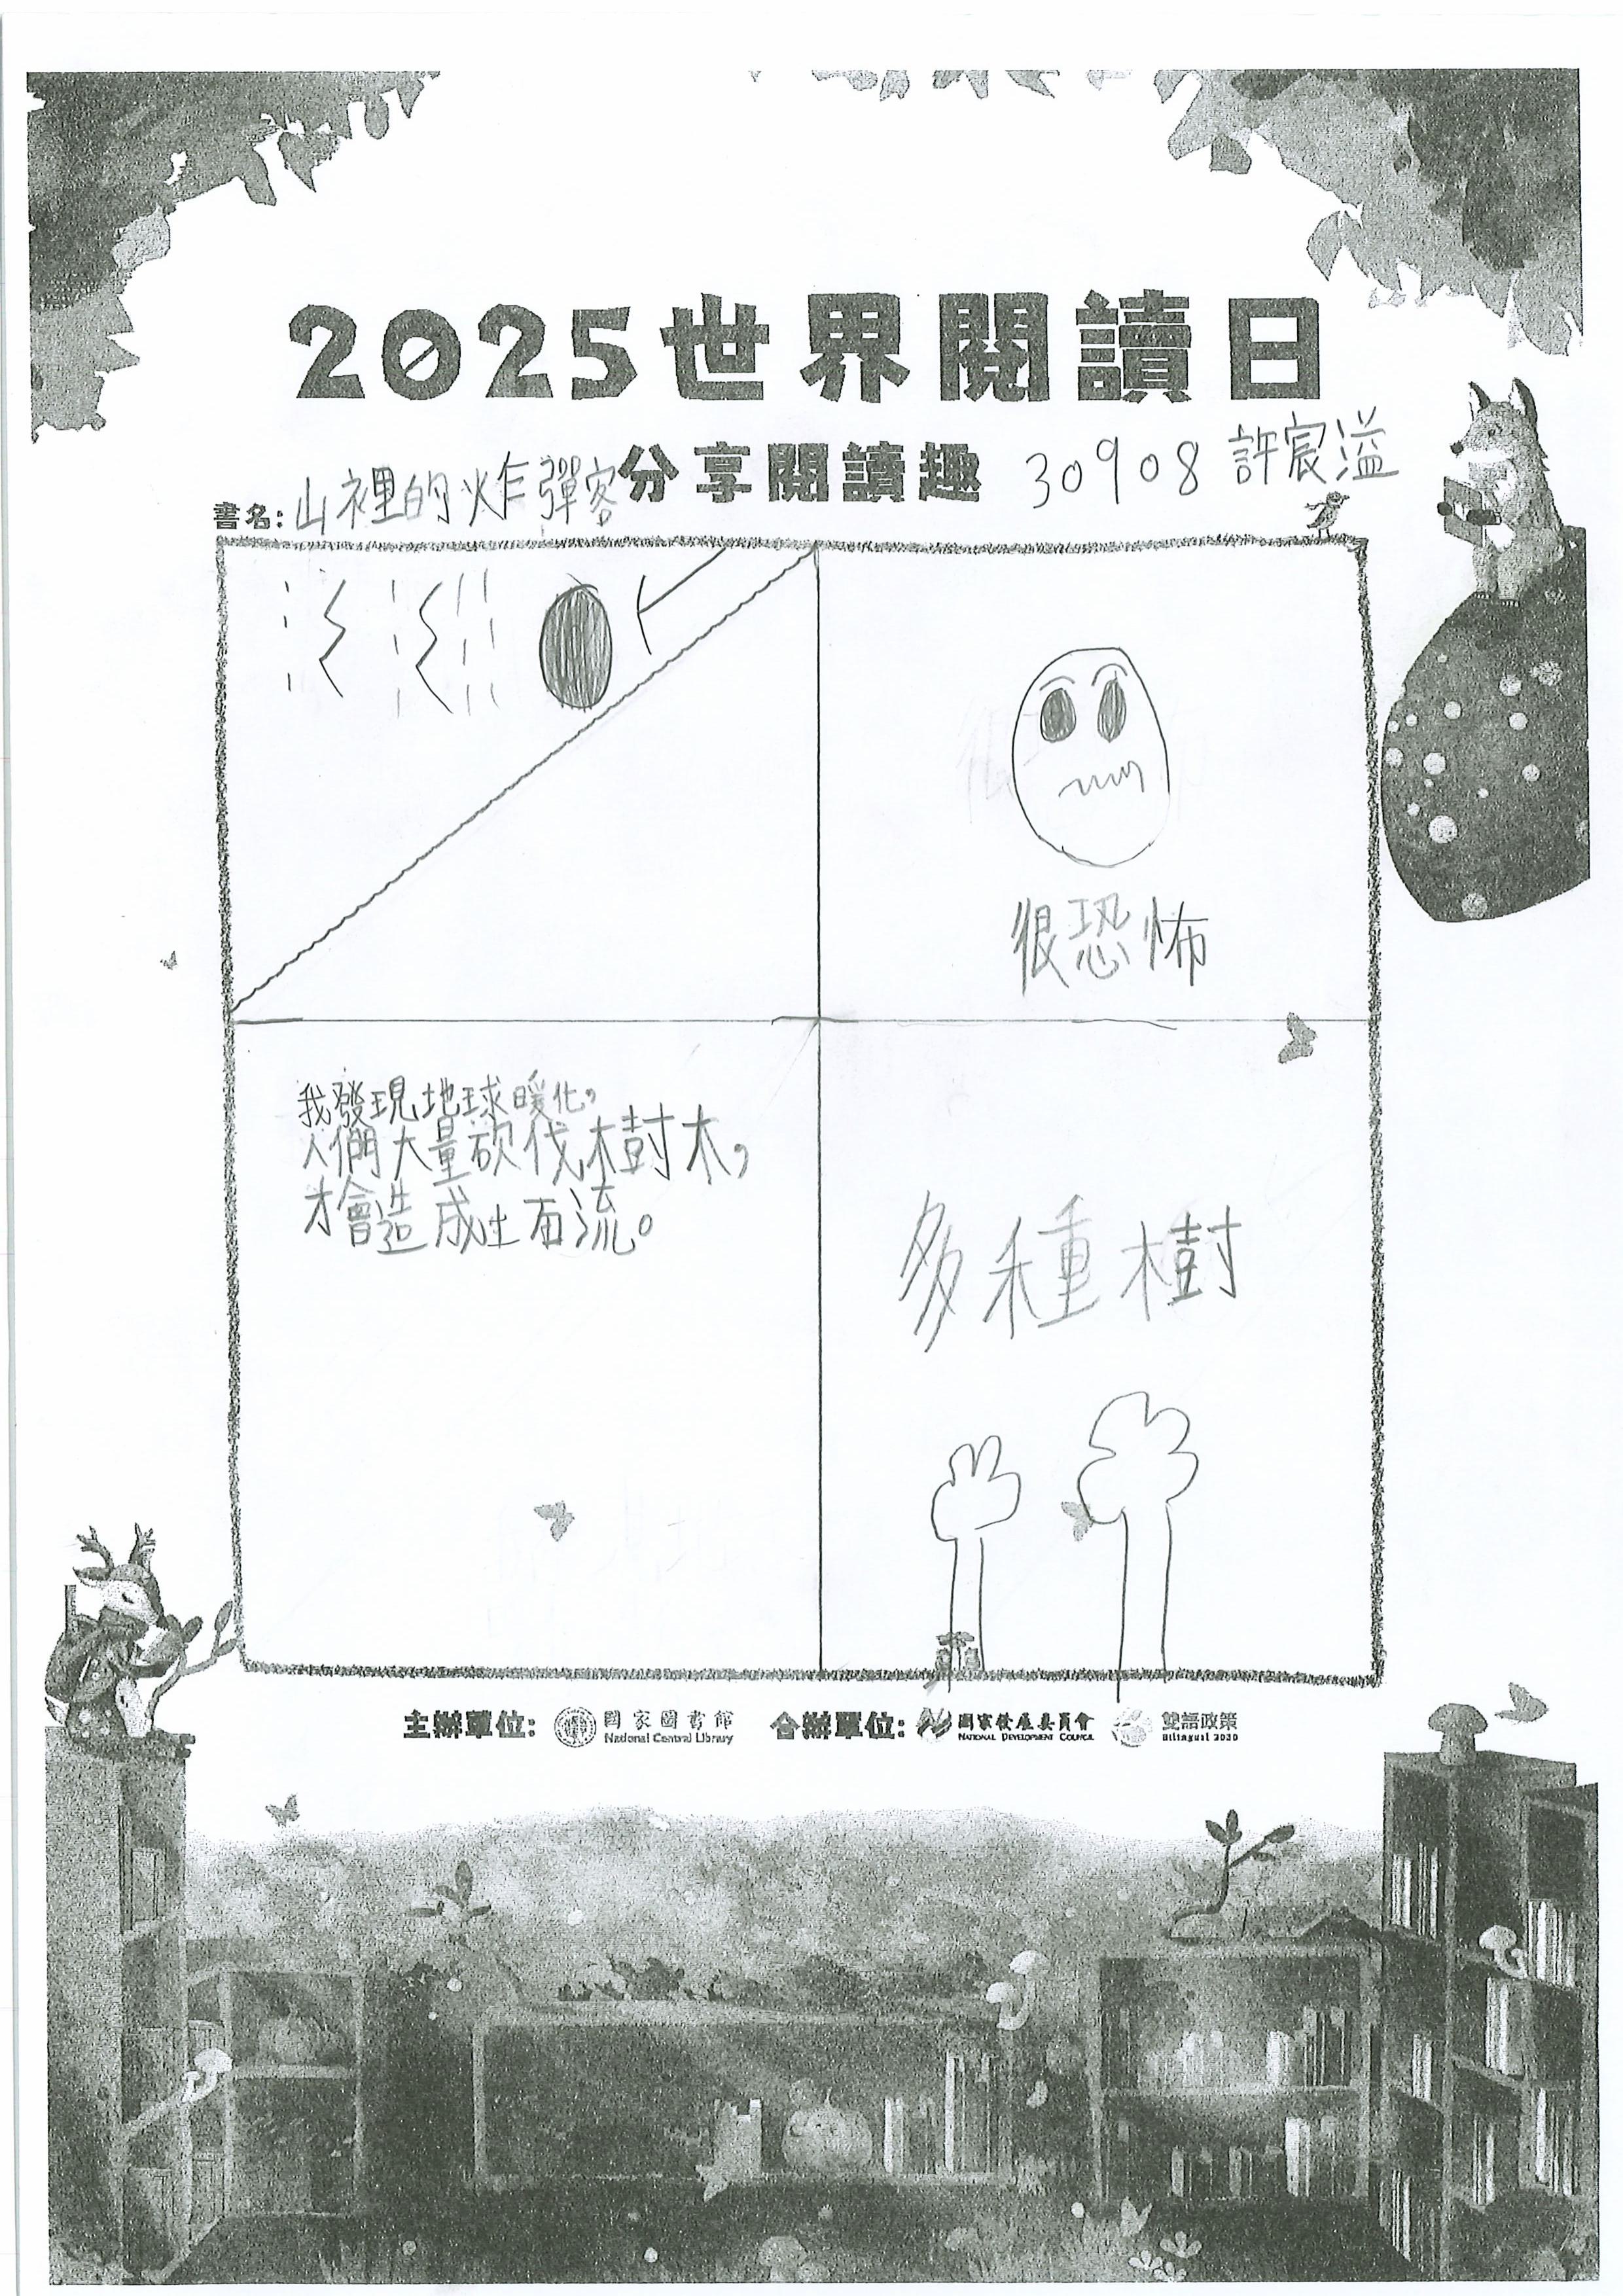 2025世界閱讀日
分享閱讀趣
30908 許宸溢
書名: 山裡的炸彈客
很恐怖
我發現地球暖化,
人們大量砍伐樹木,
才會造成土石流。
多種樹
主辦單位: 國家圖書館 National Central Library 合辦單位: 國家發展委員會 NATIONAL DEVELOPMENT COUNCIL 雙語政策 Bilingual 2030